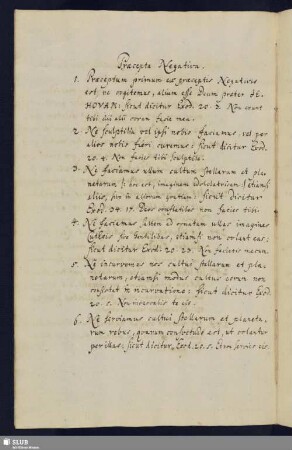 Præcepta Negativa.
1. Præceptum primum ex præceptis Negativis
est, ne cogitemus, alium esse Deum præter JE-
HOVAM: sicut dicitur Exod. 20. 2. Non erunt
tibi dii alii coram facie mea.
2. Ne sculptilia vel ipsi nobis faciamus, vel per
alios nobis fieri curemus: sicut dicitur Exod.
20. 4. Non facies tibi sculptile.
3. Ne faciamus ullum cultum stellarum et pla-
netarum (: hoc est, imaginem idololatricam :) etiamsi
aliis, pro illorum gratia: sicut dicitur
Exod. 34. 17. Deos conflatiles non facies tibi.
4. Ne faciamus, ad ornatum ullas imagines
gentilibus, etiamsi non colant eas:
sicut dicitur Exod. 20. 23. Non facietis mecum.
5. Ne incurvemus nos cultui stellarum et pla-
netarum, etiamsi modus cultus eorum non
consistat in incurvatione: sicut dicitur Exod.
20. 5. Non incurvabis te eis.
6. Ne serviamus cultui stellarum et planeta-
rum rebus, quarum consuetudo est, ut colantur
per illas: sicut dicitur, Exod. 20. 5. Et non servies eis.
SLUB